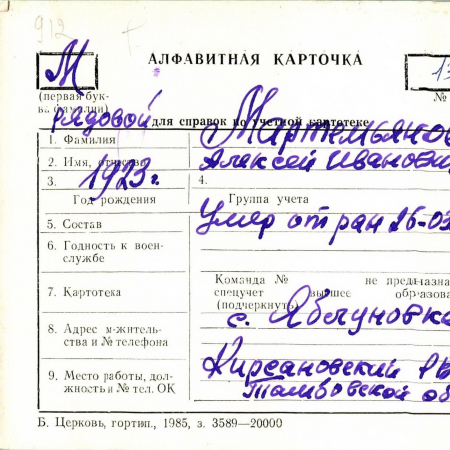 912
М
АЛФАВИТНАЯ КАРТОЧКА
13
(первая бук-
ва фамилии)
№
рядовой
для справок по учетной картотеке
1. Фамилия Мартемьянов
2. Имя, отчество Алексей Иванови
3. 1923 г. 4.
Год рождения Группа учета
5. Состав Умер от ран 26-03
6. Годность к воен-
службе
Команда № не предназна
7. Картотека спецучет высшее образова
(подчеркнуть)
с. Яблуновка
8. Адрес м-житель-
ства и № телефона
Кирсановский РВ
9. Место работы, дол-
жность и № тел. ОК Тамбовской об
Б. Церковь, гортип., 1985, з. 3589—20000